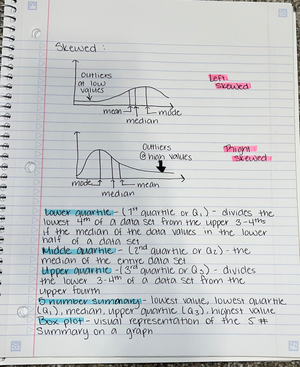 Skewed:
Outliers
@ low
values
Left
Skewed
mean
mode
median
Outliers
@ high values
Right
Skewed
mode
mean
median
Lower quartile - (1st quartile or Q1) - divides the
lowest 4th of a data set from the upper 3-4ths
if the median of the data values in the lower
half of a data set
Middle quartile - (2nd quartile or Q2) - the
median of the entire data set
Upper quartile - (3rd quartile or Q3) - divides
the lower 3-4th of a data set from the
upper fourth
5 number summary - lowest value, lowest quartile
(Q1), median, upper quartile (Q3), highest value
Box plot - visual representation of the 5 #
Summary on a graph